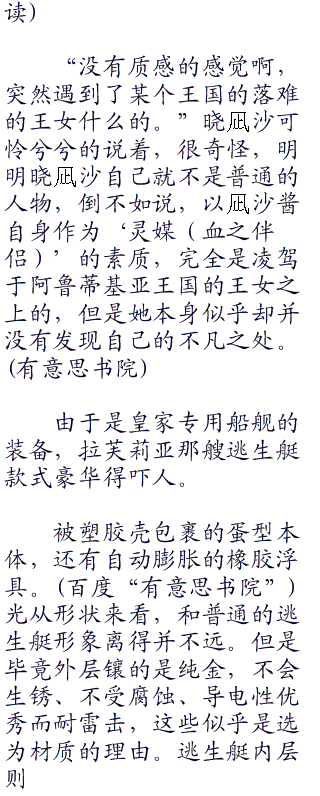 读）
“没有质感的感觉啊，
突然遇到了某个王国的落难
的王女什么的。”晓凪沙可
怜兮兮的说着，很奇怪，明
明晓凪沙自己就不是普通的
人物，倒不如说，以凪沙酱
自身作为‘灵媒（血之伴
侣）’的素质，完全是凌驾
于阿鲁蒂基亚王国的王女之
上的，但是她本身似乎却并
没有发现自己的不凡之处。
(有意思书院)
由于是皇家专用船舰的
装备，拉芙莉亚那艘逃生艇
款式豪华得吓人。
被塑胶壳包裹的蛋型本
体，还有自动膨胀的橡胶浮
具。(百度“有意思书院”)
光从形状来看，和普通的逃
生艇形象离得并不远。但是
毕竟外层镶的是纯金，不会
生锈、不受腐蚀、导电性优
秀而耐雷击，这些似乎是选
为材质的理由。逃生艇内层
则